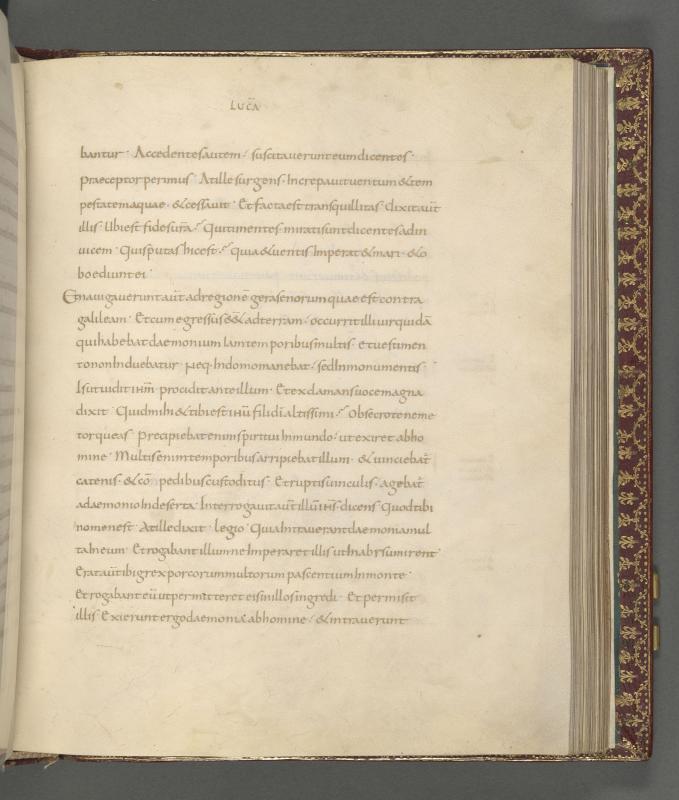 LUCA
bantur · Accedentes autem · suscitaverunt eum dicentes ·
praeceptor perimus · At ille surgens · Increpavit ventum & tem
pestatem aquae · & cessavit · Et facta est tranquillitas · dixit aūt
illis · Ubi est fides ur̄a ? Qui timentes · mirati sunt dicentes ad in
vicem · Quis putas hic est ? quia & ventis Imperat & mari · & o
boediunt ei ·
Enavigaverunt aūt ad regionē gerasenorum quae est contra
galileam · Et cum egressus ēē& ad terram · occurrit illi vir quidā
qui habebat daemonium Iam temporibus multis · et vestimen
to non Induebatur · neq· In domo manebat · sed In monumentis ·
Is ut vidit ihm̄ · procidit ante illum · Et exclamans voce magna
dixit · Quid mihi & tibi est ihū fili dī altissimi ? Obsecro te ne me
torqueas · Precipiebat enim spiritui Inmundo · ut exiret ab ho
mine · Multis enim temporibus arripiebat illum · & vinciebat̄
catenis · & cō pedibus custoditus · Et ruptis vinculis · agebat̄
a daemonio In deserta · Interrogavit aūt illū ihs̄ · dicens · Quod tibi
nomen est · At ille dixit · legio · Quia Intraverant daemonia mul
ta In eum · Et rogabant illum ne Imperaret illis ut In abyssum irent ·
Erat aūt ibi grex porcorum multorum pascentium In monte ·
Et rogabant eū ut permitteret eis in illos ingredi · Et permisit
illis · Exierunt ergo daemonia ab homine · & intraverunt